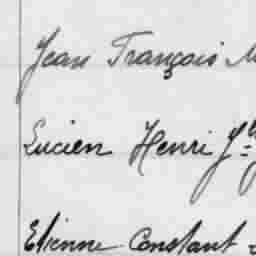 Jean François
Lucien Henri
Etienne Constant